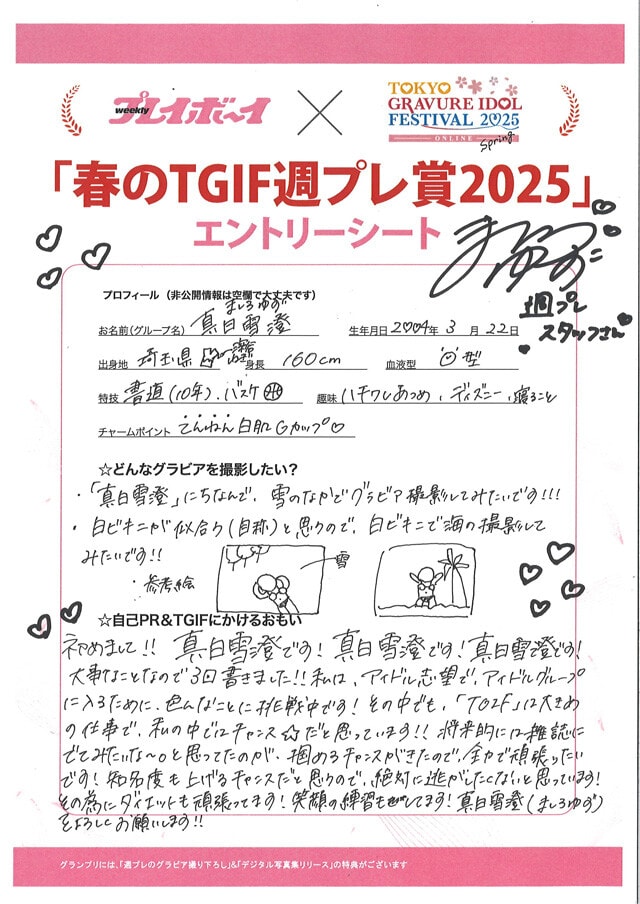 weekly プレイボーイ
TOKYO
GRAVURE IDOL
FESTIVAL 2025
ONLINE
Spring
「春のTGIF週プレ賞2025」
エントリーシート
ましろゆず
週プレ
スタッフさん
プロフィール（非公開情報は空欄で大丈夫です）
ましろゆず
お名前(グループ名) 真白雪澄 生年月日 2004年 3月 22日
出身地 埼玉県 身長 160cm 血液型 O型
特技 書道(10年)、バスケ 趣味 ハチワレあつめ、ディズニー、寝ること
チャームポイント てんねん白肌Gカップ♡
☆どんなグラビアを撮影したい?
・「真白雪澄」にちなんで、雪のなかでグラビア撮影してみたいです!!!
・白ビキニが似合う(自称)と思うので、白ビキニで海の撮影して
みたいです!!
・参考絵
雪
☆自己PR&TGIFにかけるおもい
初めまして!! 真白雪澄です! 真白雪澄です! 真白雪澄です!
大事なことなので3回書きました!! 私は、アイドル志望で、アイドルグループ
に入るために、色んなことに挑戦中です! その中でも、「TGIF」は大きめ
の仕事で、私の中ではチャンスだと思っています!! 将来的には雑誌に
でてみたいな〜。と思ってたのが、掴めるチャンスがきたので、全力で頑張りたい
です! 知名度も上げるチャンスだと思うので、絶対に逃がしたくないと思っています!
その為にダイエットも頑張ってます! 笑顔の練習もしてます! 真白雪澄(ましろゆず)
をよろしくお願いします!!
グランプリには、「週プレのグラビア撮り下ろし」&「デジタル写真集リリース」の特典がございます